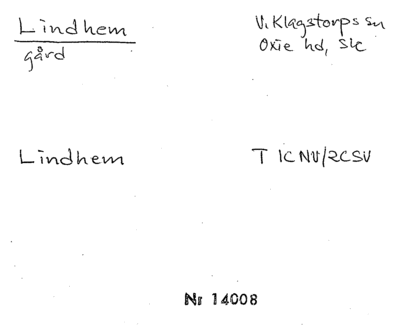 Lindhem V. Klagstorps sn
gård Oxie hd, Sk
Lindhem T 1C NV/2C SV
Nr 14008